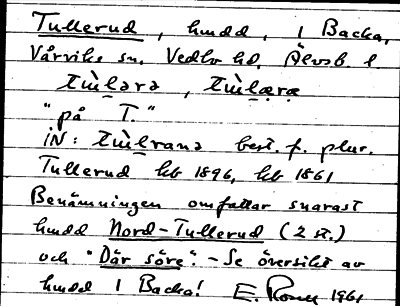 Tullerud, hmdd, 1 Backa,
Vårviks sn. Vedbo hd. Älvsb. l
"på T."
iN: best. f. plur.
Tullerud kb 1896, kb 1861
Benämningen omfattar snarast
hmdd Nord-Tullerud (2 st.)
och "Där söre". - Se översikt av
hmdd 1 Backa! E. 1961